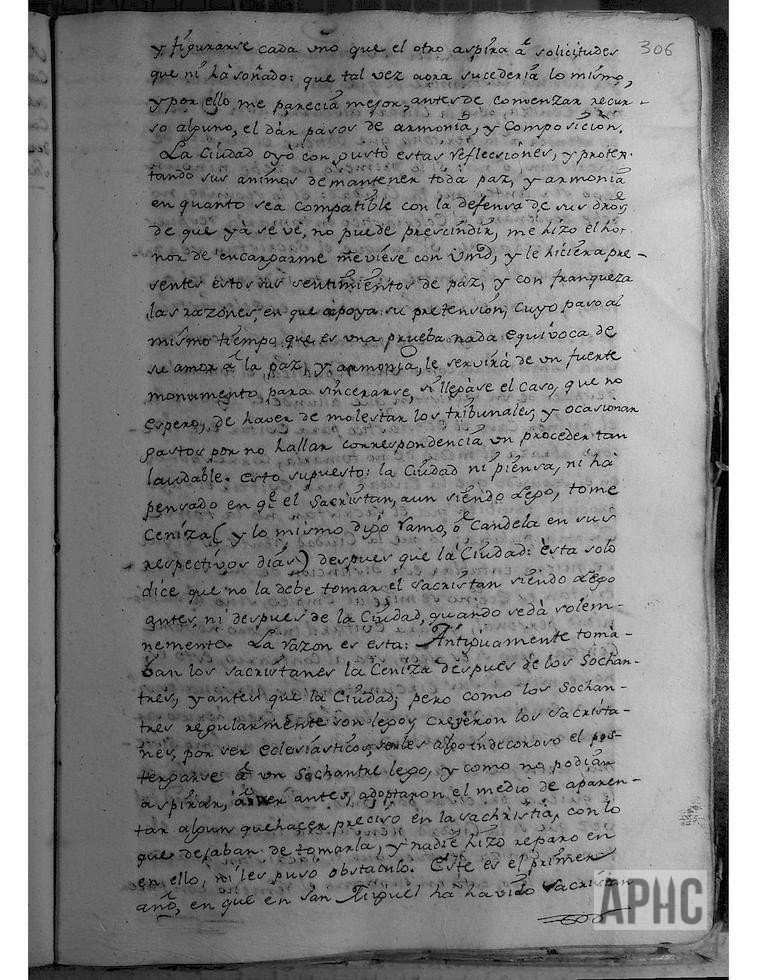 306
y figurarse cada uno que el otro aspira a solicitudes
que ni hà soñado: que tal vez aora sucederia lo mismo,
y por ello me parecia mejor, antes de comenzar recur-
so alguno, el dàr pasos de armonia, y composicion.
La Ciudad oyò con gusto estas reflecsiones, y protes-
tando sus animos de mantener toda paz, y armonia
en quanto sea compatible con la defensa de sus dros,
de que yà se vè, no puede prescindir, me hizo el ho-
nor de encargarme me viese con Vmd, y le hiciera pre-
sentes estos sus sentimientos de paz, y con franqueza
las razones, en que apoya su pretension, cuyo paso al
mismo tiempo que es una prueba nada equivoca de
su amor a la paz, y armonia, le servirà de un fuerte
monumento para sincerarse, si llegàse el caso, que no
espero, de haver de molestar los tribunales, y ocasionar
gastos por no hallar correspondencia un proceder tan
laudable. Esto supuesto: la Ciudad ni piensa, ni hà
pensado en qe el Sacristan, aun siendo Lego, tome
Ceniza (y lo mismo digo Ramo, o Candela en sus
respectivos dias) despues que la Ciudad: esta solo
dice que no la debe tomar el sacristan siendo Lego
antes, ni despues de la Ciudad, quando se dà solem-
nemente. La razon es esta: Antiguamente toma-
ban los sacristanes la Ceniza despues de los Sochan-
tres, y antes que la Ciudad; pero como los Sochan-
tres regularmente son legos, creyeron los sacrista-
nes, por ser eclesiasticos, serles algo indecoroso el pos-
tergarse a un Sochantre lego, y como no podian
aspirar, a ser antes, adoptaron el medio de aparen-
tar algun quehacer preciso en la sachristia, con lo
que dejaban de tomarla, y nadie hizo reparo en
en ello, ni les puso obstaculo. Este es el primer
año, en que en San Miguel ha havido Sacristan
APHC